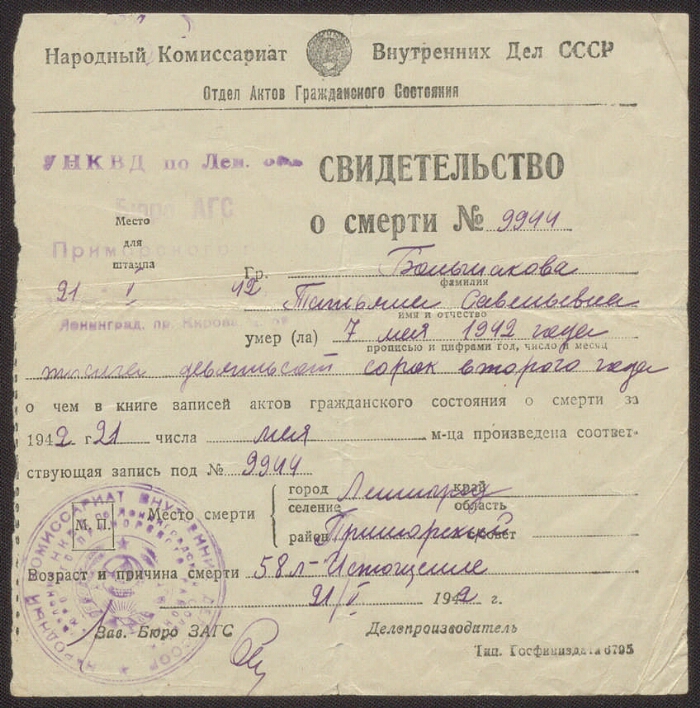 Народный Комиссариат Внутренних Дел СССР
Отдел Актов Гражданского Состояния
УНКВД по Лен.
СВИДЕТЕЛЬСТВО
Бюро АГС
о смерти № 9944
Место
для
штампа
Приморского
Гр. Большакова
фамилия
21 - V 42
Татьяна Савельевна
имя и отчество
Ленинград, пр. Кирова
умер (ла) 7 мая 1942 года
прописью и цифрами год, число и месяц
тысяча девятьсот сорок второго года
о чем в книге записей актов гражданского состояния о смерти за
1942 г 21 числа мая м-ца произведена соответ-
ствующая запись под № 9944
Место смерти
город Ленинград край
селение область
район Приморский совет
М. П.
Возраст и причина смерти 58 л - Истощение
21/V 1942 г.
Зав. Бюро ЗАГС Делопроизводитель
Тип. Госфиниздата 6795
НАРОДНЫЙ КОМИССАРИАТ ВНУТРЕННИХ ДЕЛ СССР